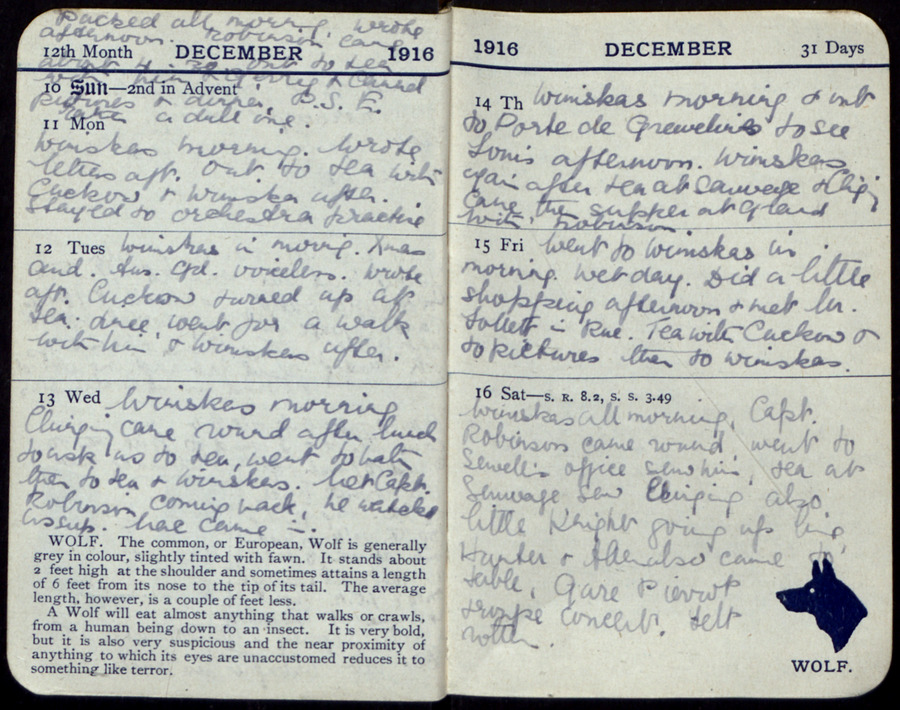 Packed all morning, wrote
afternoon. Robinson came
12th Month DECEMBER 1916
10 Sun—2nd in Advent
pictures & dinner, P.S. E.
a dull one.
11 Mon
Winiskas morning. Wrote
letters aft. Out to tea with
Cuckow & Winiskas after.
Stayed to orchestra practice
12 Tues Winiskas in morning. Xmas
and. voiceless. Wrote
aft. Cuckow turned up at
tea. went for a walk
with him & Winiskas after.
13 Wed Winiskas morning
Chinging came round after lunch
to ask us to tea, went to
then to tea & Winiskas. Met Capt.
Robinson coming back, he watched
us sup. Mac came in.
WOLF. The common, or European, Wolf is generally
grey in colour, slightly tinted with fawn. It stands about
2 feet high at the shoulder and sometimes attains a length
of 6 feet from its nose to the tip of its tail. The average
length, however, is a couple of feet less.
A Wolf will eat almost anything that walks or crawls,
from a human being down to an insect. It is very bold,
but it is also very suspicious and the near proximity of
anything to which its eyes are unaccustomed reduces it to
something like terror.
1916 DECEMBER 31 Days
14 Th Winiskas morning & out
to Porte de Gravelines to see
Louis afternoon. Winiskas
again after tea at Sauvage &
came, then supper at Grand
with Robinson
15 Fri Went to Winiskas in
morning. Wet day. Did a little
shopping afternoon & met Mr.
in Rue. Tea with Cuckow &
to pictures then to Winiskas.
16 Sat—S. R. 8.2, S. S. 3.49
Winiskas all morning, Capt.
Robinson came round, went to
Sewell's office saw him, tea at
Sauvage saw Chinging also
little Knight going up line,
Hunter & also came to
table, Gare Pierrot
troupe concert. Felt
rotten.
WOLF.